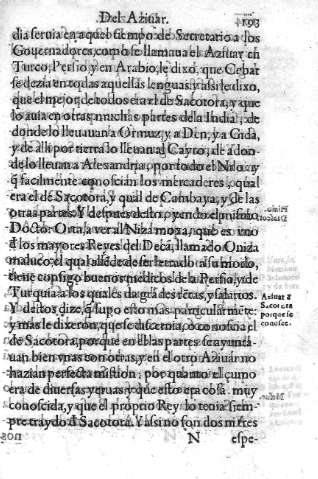 Del Aziuar.
193
dia seruia en aquel tiempo de Secretario a los
Gouernadores, como se llamaua el Aziuar en
Turco, Persio, y en Arabio, le dixo, que Cebar
se dezia en todas aquellas lenguas, y assi le dixo,
que el mejor de todos era el de Sacotora, y que
lo auia en otras muchas partes dela India, de
donde lo lleuauan a Ormuz, y a Diu, y a Gida,
y de alli por tierra lo lleuan al Cayro, de adon-
de lo lleuan a Alexandria, por todo el Nilo. y
q̃ facilmente conoscian los mercaderes, qual
era el de Sacotora, y qual de Cambaya, y de las
otras partes. Y despues desto, yendo el mismo
Doctor Orta, a ver al Nizamoxa, que es vno
de los mayores Reyes del Decã, llamado Oniza
maluco, el qual allẽde de ser letrado a su modo,
tiene consigo buenos medicos de la Persio, y de
Turquia a los quales da grãdes rẽtas, y salarios.
Y destos dize, q̃ supo esto mas particularmẽte:
y mas le dixerõn, que se discernia, o conoscia el
de Sacotora, porque en ellas partes se ayunta-
uan bien vnas con otras, y en el otro Aziuar no
hazian perfecta mistion, por quanto el çumo
era de diuersas yeruas, y que esto era cosa muy
conoscida, y que el proprio Rey lo tenia siem-
pre traydo d̃ Sacotora. Y assi no son dos mẽtes
N
espe-
Aziuar d̃
Sacotora
porque se
conosce.